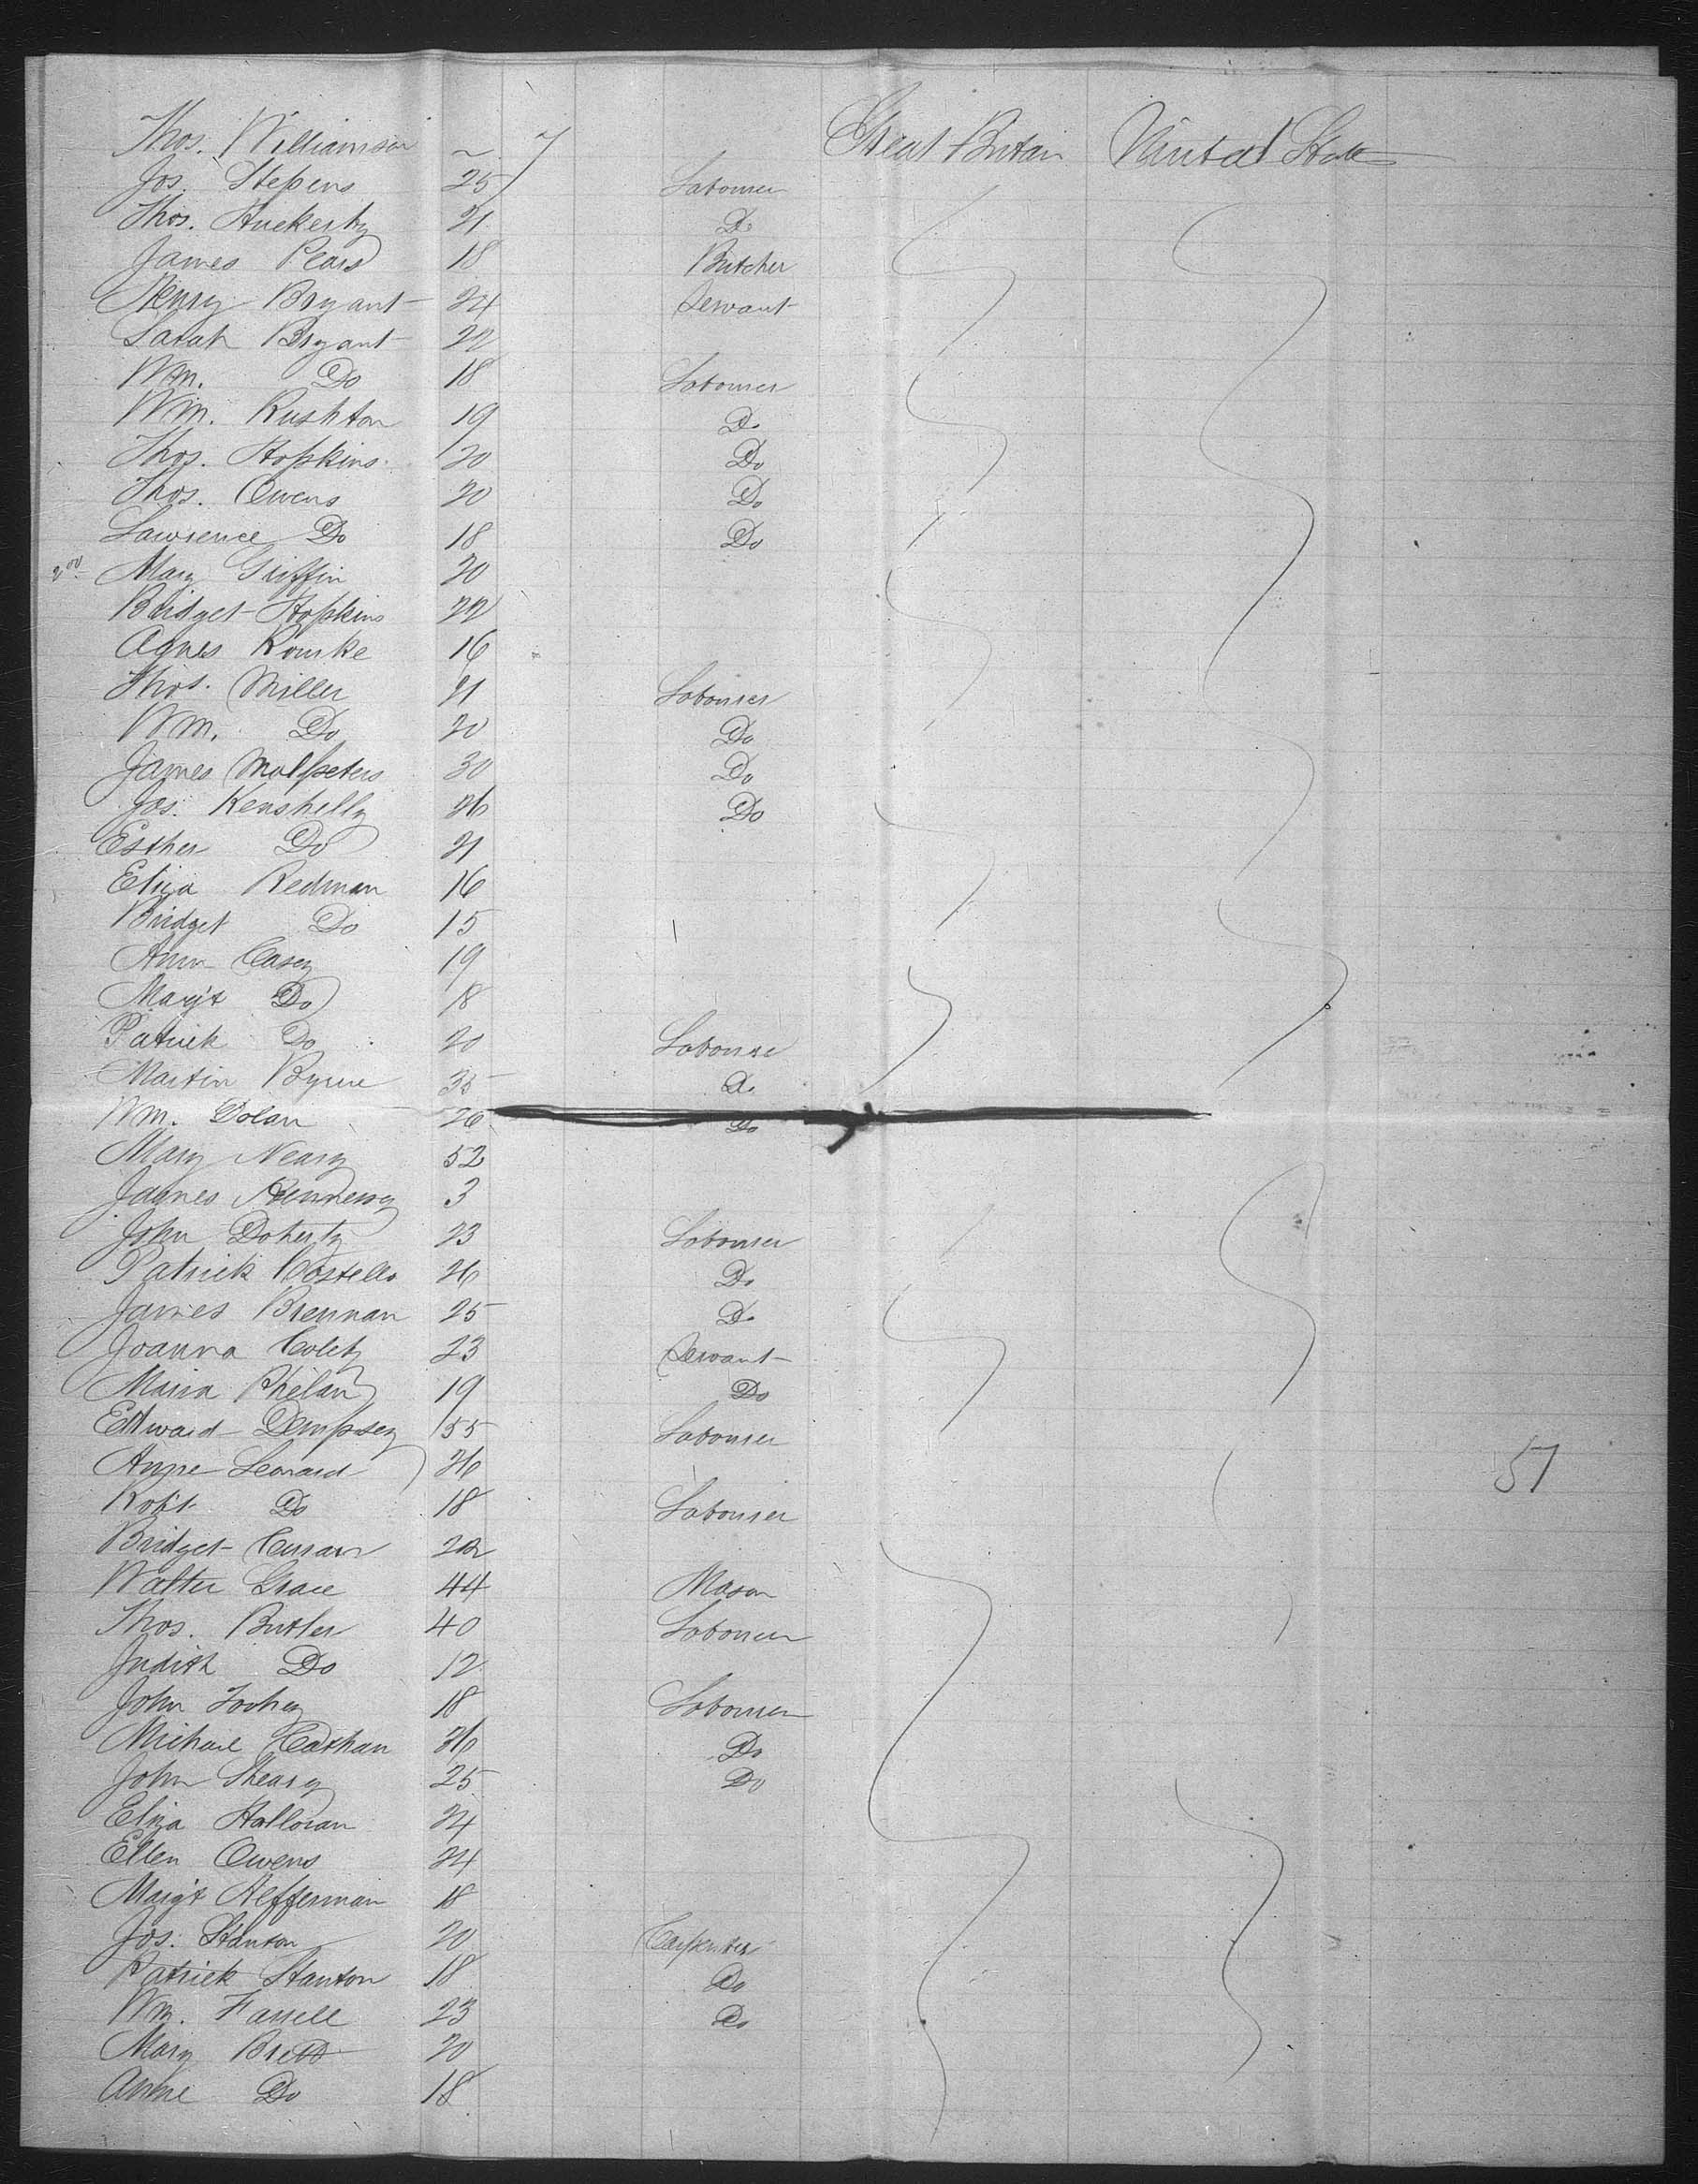 Thos. Williamson ~ 7 Great Britain United States
Jos. Stepens 25 Labourer
Thos. Huckerby 21 Do
James Pears 18 Butcher
Henry Bryant 24 Servant
Sarah Bryant 22
Wm. Do 18 Labourer
Wm. Rushton 19 Do
Thos. Hopkins 20 Do
Thos. Owens 20 Do
Lawrence Do 18 Do
Mary Griffin 20
Bridget Hopkins 22
Agnes Rourke 16
Thos. Miller 21 Labourer
Wm. Do 20 Do
James Malpeters 30 Do
Jos. Kenshelly 26 Do
Esther Do 21
Eliza Redman 16
Bridget Do 15
Ann Casey 19
Marg't Do 18
Patrick Do 20 Labourer
Martin Byrne 35 Do
Wm. Dolan 26 Do
Mary Neary 52
James 3
John Doherty 23 Labourer
Patrick Costello 26 Do
James Brennan 25 Do
Joanna 23 Servant
Maria Phelan 19 Do
Edward Dempsey 55 Labourer
Anne Leonard 26 51
Robt Do 18 Labourer
Bridget Curran 22
Walter Grace 44 Mason
Thos. Butler 40 Labourer
Judith Do 12
John Toohey 18 Labourer
Michael Cathan 26 Do
John Sheary 25 Do
Eliza Halloran 24
Ellen Owens 24
Marg't Hefferman 18
Jos. Stanton 20 Carpenter
Patrick Stanton 18 Do
Wm. Farrell 23 Do
Mary Brett 20
Anne Do 18